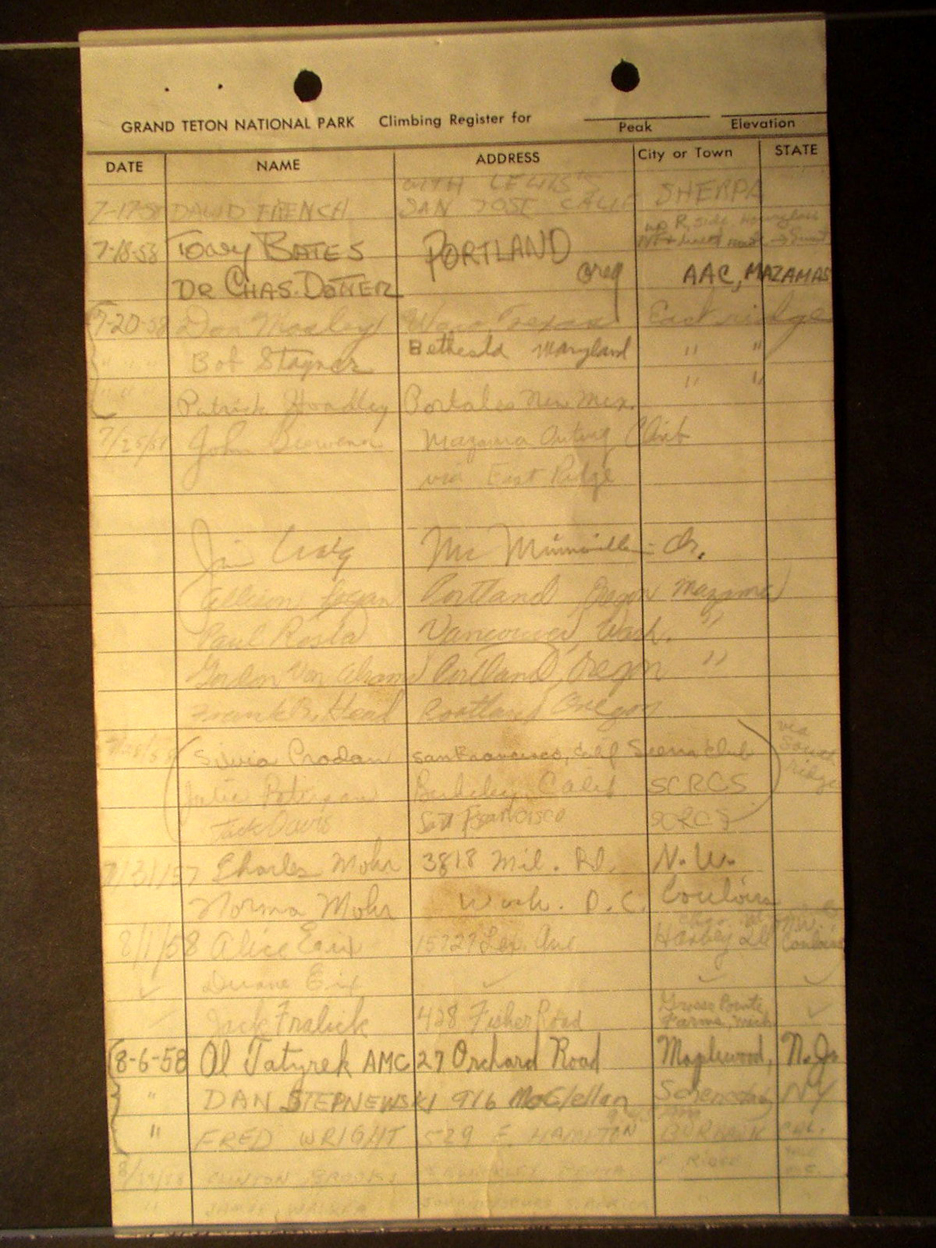 GRAND TETON NATIONAL PARK Climbing Register for
Peak Elevation
DATE NAME ADDRESS City or Town STATE
WITH LEWIS'S SHERPA
7-17-58 DAVID FRENCH SAN JOSE CALIF
7-18-58 Tony BATES PORTLAND
DR CHAS. DOTTER Oreg AAC, MAZAMAS
7-20-58 Don Waco Texas East ridge
" " " Bob Stagner Bethesda Maryland " "
" " " Patrick Hoadley Portales New Mex. " "
John Mazama Outing Club
via East Ridge
Jim Craig Mc Minnville Or.
Portland Oregon Mazama
Paul Vancouver, Wash. "
Gordon Van Portland, Oregon "
Frank Portland Oregon
Silvia Prodan San Francisco, Calif Sierra Club via South ridge
Julie Berkeley Calif SCRCS
Jack Davis San Francisco SCRCS
7/31/57 Charles Mohr 3818 Mil. Rd. N.W.
Norma Mohr Wash. D.C. Couloir
8/1/58 Alice Eix 15727 Lex. Ave Harvey Ill
✓ Duane Eix ✓ ✓ ✓
Jack Fralick 428 Fisher Road Grosse Pointe Farms, Mich ✓
8-6-58 Al Tatyrek AMC 27 Orchard Road Maplewood, N.J.
" DAN STEPNEWSKI 916 McClellan Schenectady NY
" FRED WRIGHT 529 E. HAMPTON BURBANK CAL.
CLINTON BROOKS
JAMES WALKER